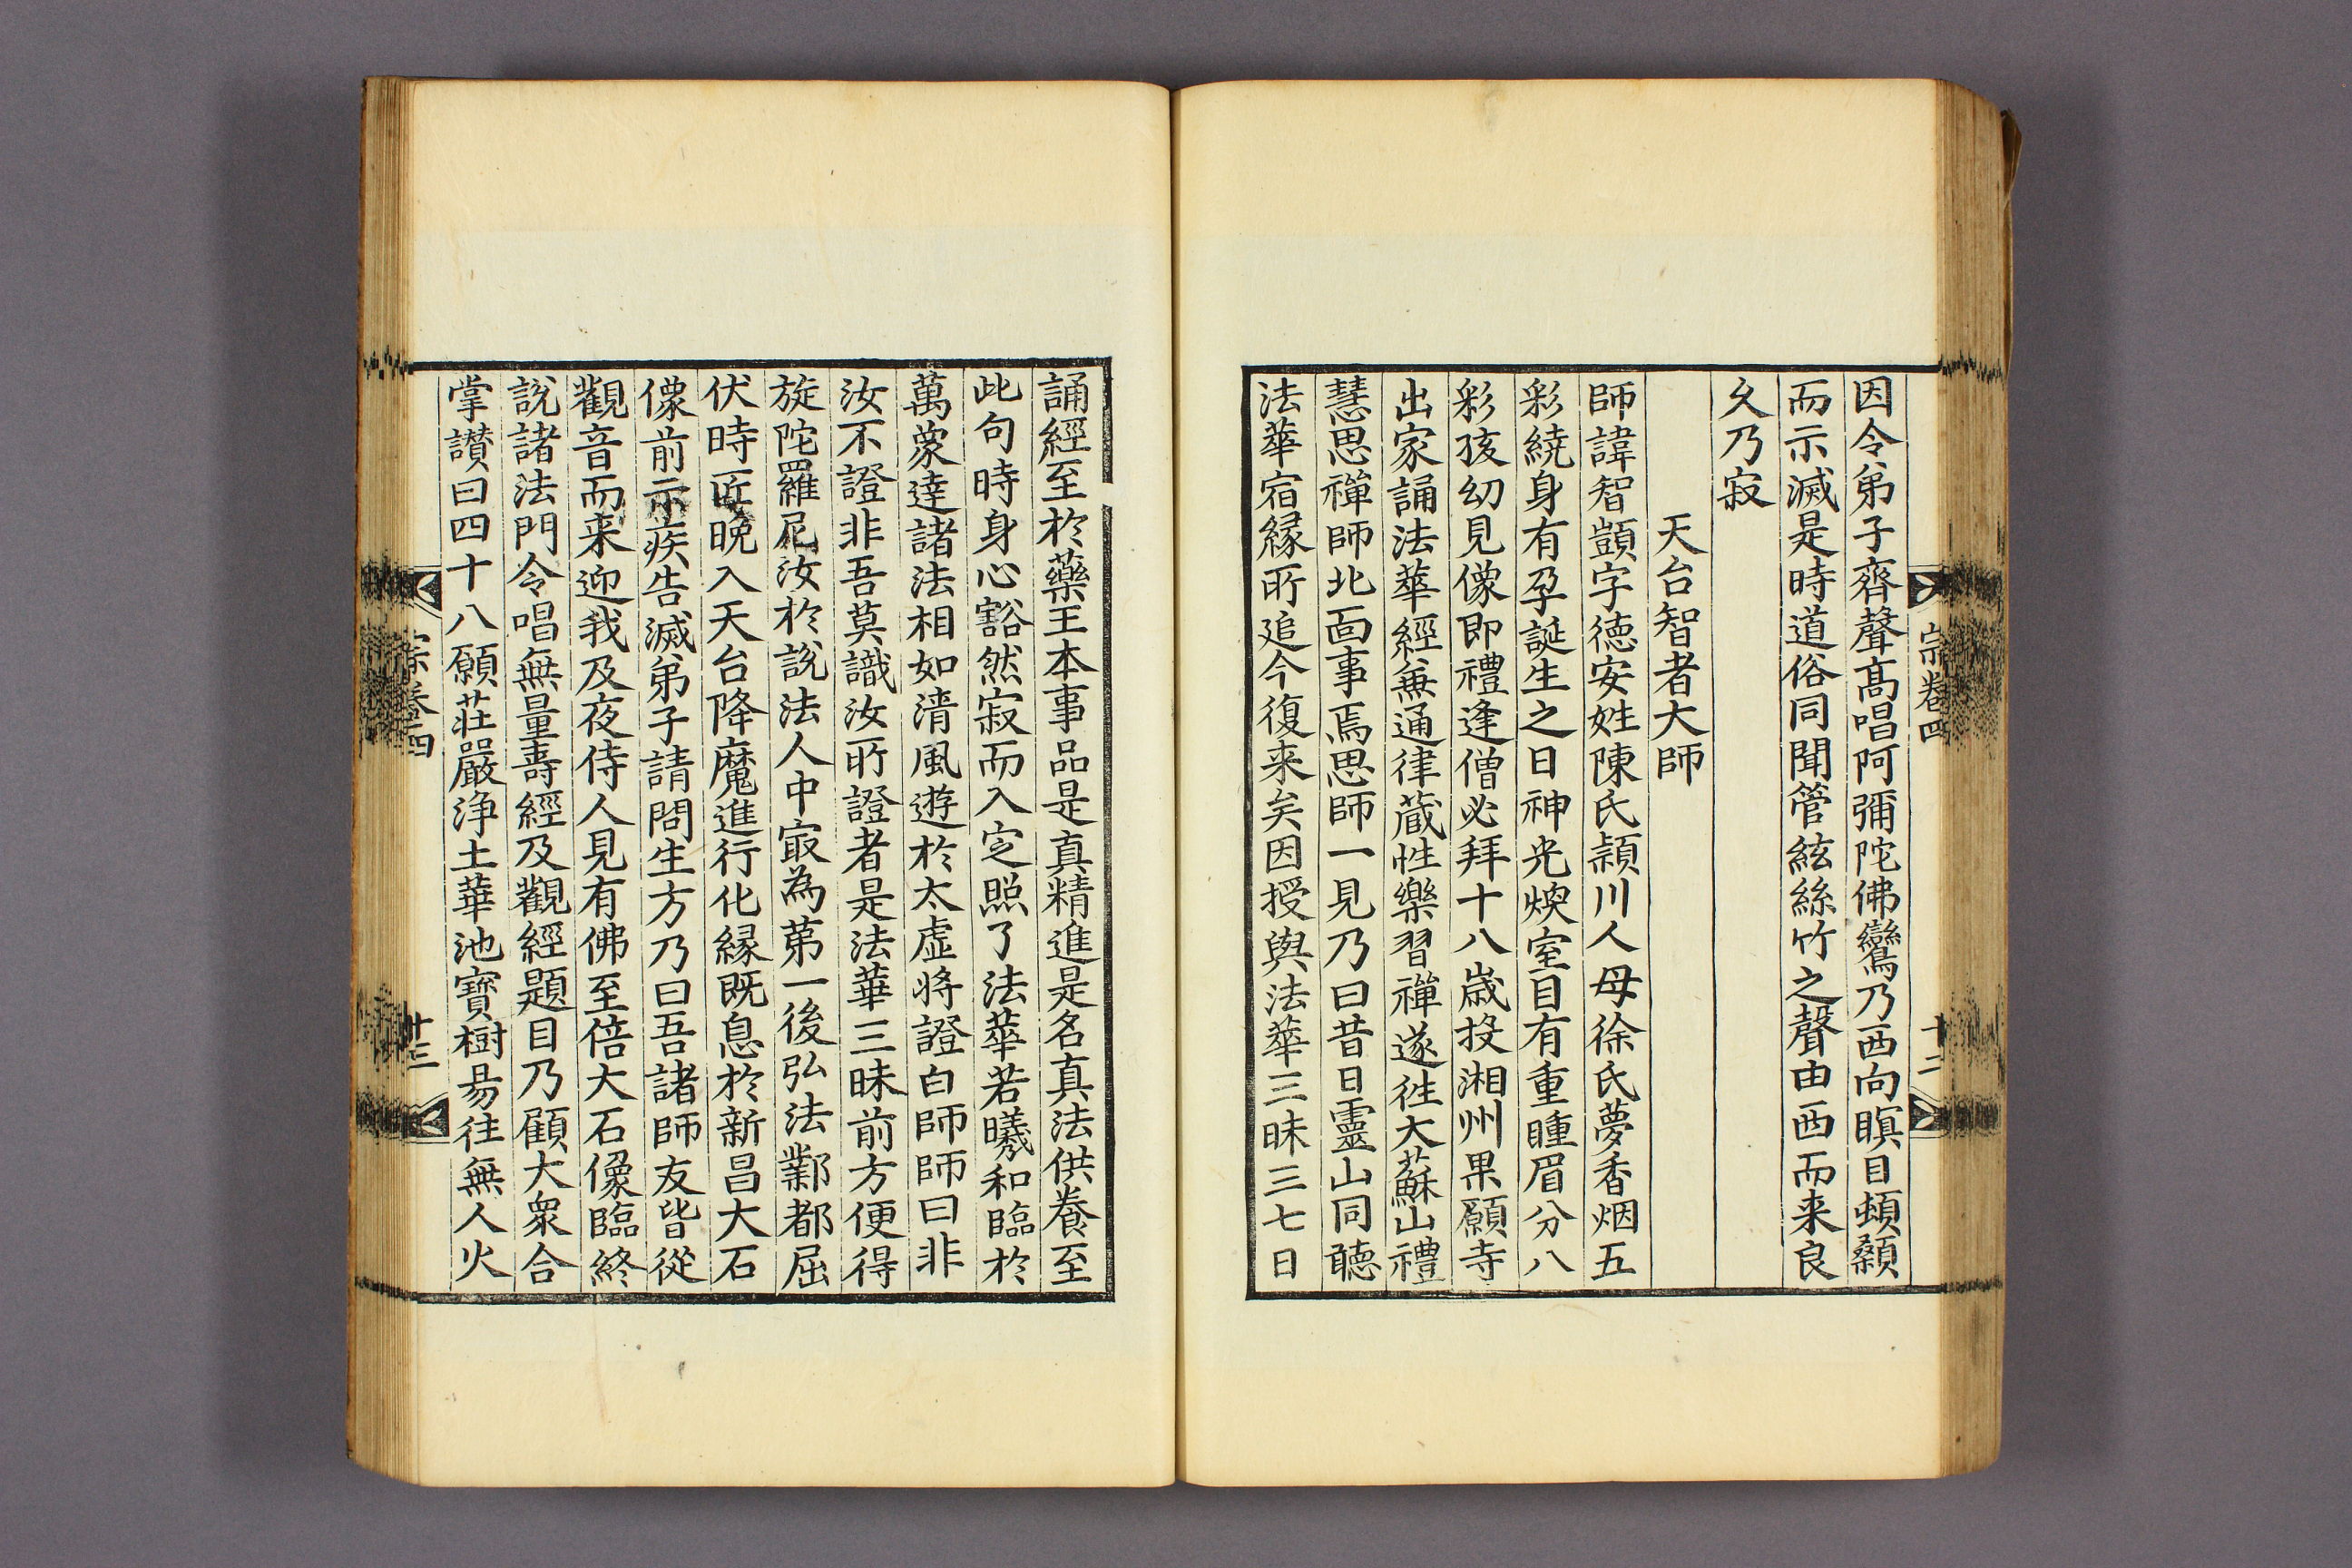 因令弟子齊聲高唱阿彌陀佛鸞乃西向瞑目頓顙
而示滅是時道俗同聞管絃絲竹之聲由西而来良
久乃寂
天台智者大師
師諱智顗字德安姓陳氏頴川人母徐氏夢香烟五
彩繞身有孕誕生之日神光煥室目有重瞳眉分八
彩孩幼見像即禮逢僧必拜十八歳投湘州果願寺
出家誦法華經兼通律蔵性樂習禪遂徃大蘇山禮
慧思禪師北面事焉思師一見乃曰昔日靈山同聽
法華宿緣所追今復来矣因授與法華三昧三七日
宗卷四
十二
誦經至於藥王本事品是真精進是名真法供養至
此句時身心豁然寂而入定照了法華若曦和臨於
萬象達諸法相如清風遊於太虛將證白師師曰非
汝不證非吾莫識汝所證者是法華三昧前方便得
旋陀羅尼汝於說法人中㝡為苐一後弘法鄴都屈
伏時匠晚入天台降魔進行化緣既息於新昌大石
像前示疾告滅弟子請問生方乃曰吾諸師友皆從
觀音而来迎我及夜侍人見有佛至倍大石像臨終
說諸法門令唱無量壽經及觀經題目乃顧大衆合
掌讃曰四十八願莊嚴淨土華池寶樹昜往無人火
宗卷四
十三